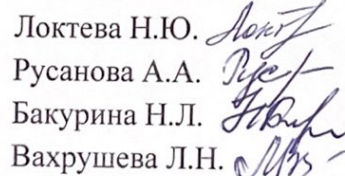 Локтева Н.Ю.
Русанова А.А.
Бакурина Н.Л.
Вахрушева Л.Н.